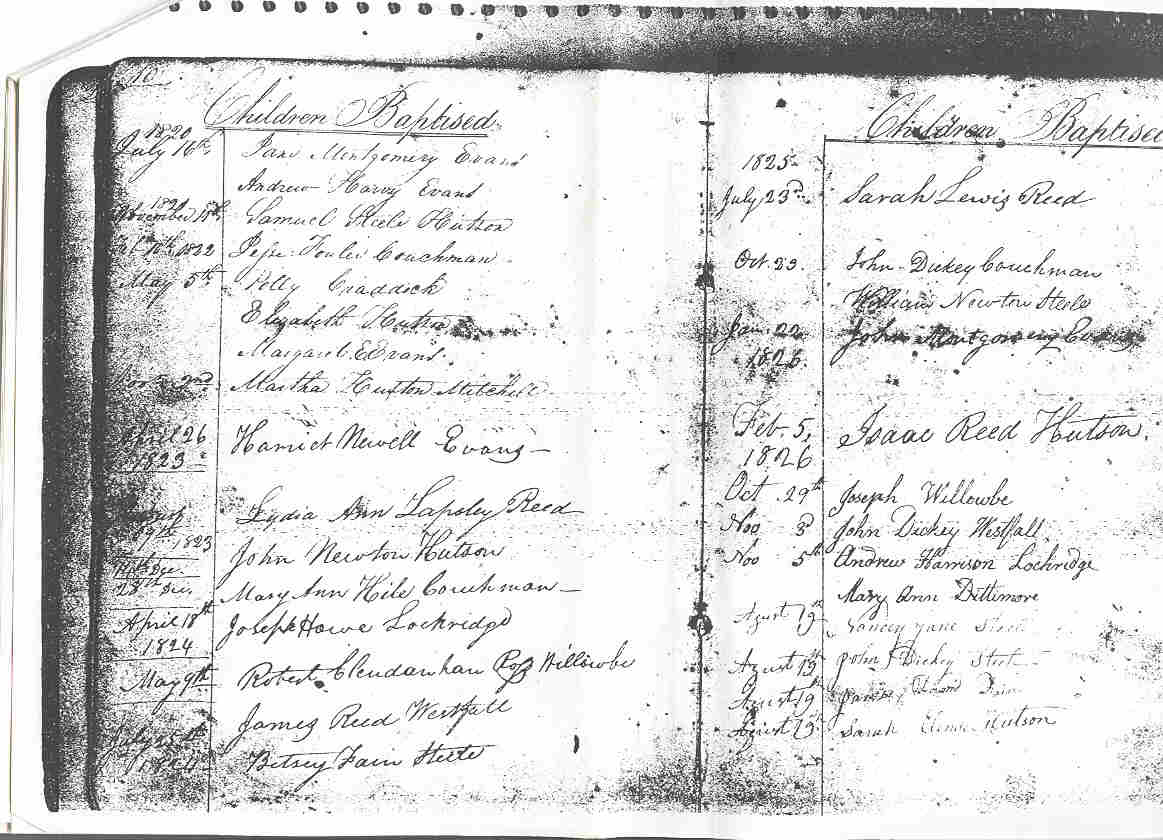 10
Children Baptised
1820
July 16th Jane Montgomery Evans
Andrew Harvy Evans
1821
November 18th Samuel Steele Hutson
10th 1822 Jesse Fouler Couchman
May 5th Polly Craddick
Elizabeth Hutson
Margaret E Evans
2nd Martha Huston Mitchell
April 26 Harriet Newell Evans
1823
August Lydia Ann Lapsley Reed
19th 1823
John Newton Hutson
Dec.
28th Dec. Mary Ann Hile Couchman
April 18th Joseph Howe Lockridge
1824
May 9th Robert Clendanhan Ross Willowbe
James Reed Westfall
July 25th
1824 Betsey Fain Steele
Children Baptised
1825
July 23rd Sarah Lewis Reed
Oct. 23. John Dickey Couchman
William Newton Steele
Jan. 22 John Montgomery Evans
1826.
Feb. 5, Isaac Reed Hutson.
1826
Oct. 29th Joseph Willowbe
Nov 3d John Dickey Westfall
Nov 5th Andrew Harrison Lockridge
Mary Ann Dittimore
Agust 19th Nancey Jane Steel
Agust 19th John Dickey Steel
Agust 19th
Agust 19th Sarah Hutson